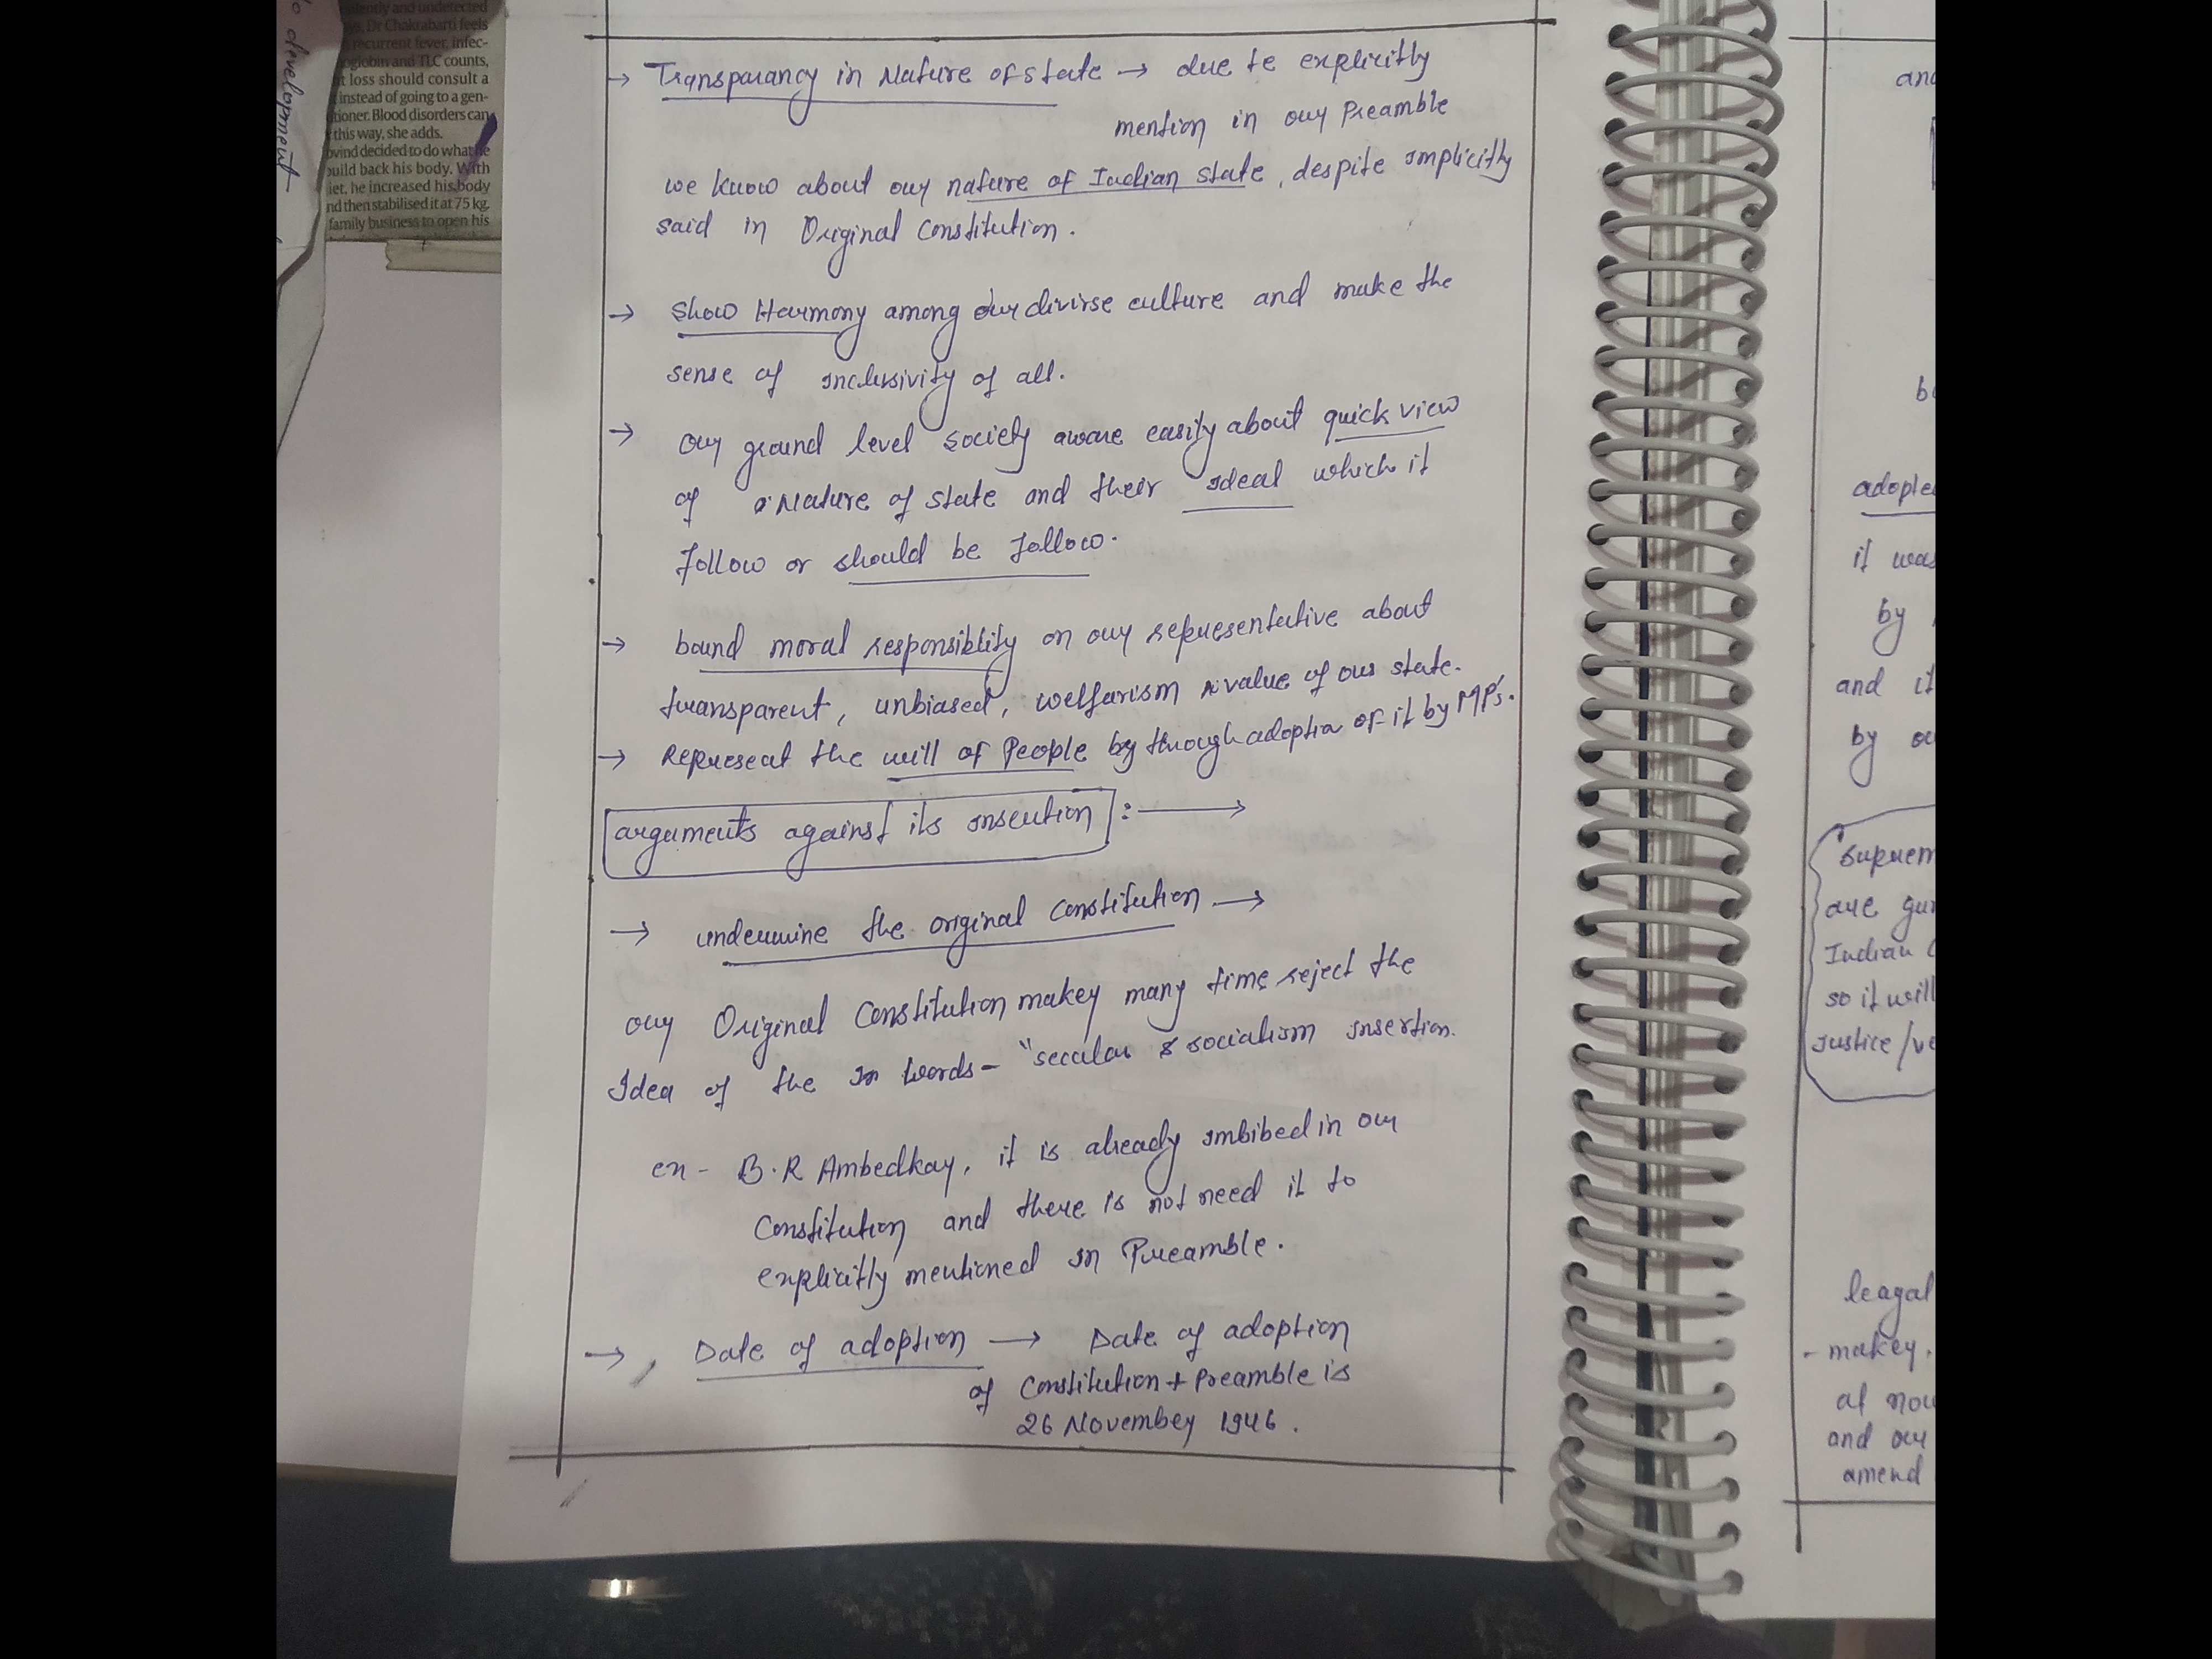 o development
lently and undetected
ys, Dr Chakrabarti feels
recurrent fever, infec-
oglobin and TLC counts,
t loss should consult a
instead of going to a gen-
tioner. Blood disorders can
this way, she adds.
ovind decided to do what he
build back his body. With
iet, he increased his body
nd then stabilised it at 75 kg.
family business to open his
→ Transparancy in Nature of state → due to explicitly
mention in our Preamble
we know about our nature of Indian state, despite implicitly
said in Original Constitution.
→ Show Harmony among our divirse culture and make the
sense of inclusivity of all.
→ our ground level society aware easily about quick view
of Nature of state and their ideal which it
follow or should be follow.
→ bound moral responsiblity on our representative about
transparent, unbiased, welfarism value of our state.
→ Represeat the will of People by through adoption of it by MP's.
arguments against its insertion :→
→ undermine the original Constitution →
our Original Constitution maker many time reject the
Idea of the words - "secular & socialism insertion.
ex - B.R Ambedkar, it is already imbibed in our
Constitution and there is not need it to
explicitly mentioned in Preamble.
→ Date of adoption → Date of adoption
of Constitution + Preamble is
26 November 1946.
and
adopted
it was
by
and it
by ou
suprem
are gua
Indian C
so it will
Justice/ve
leagal
- maker.
at nou
and our
amend